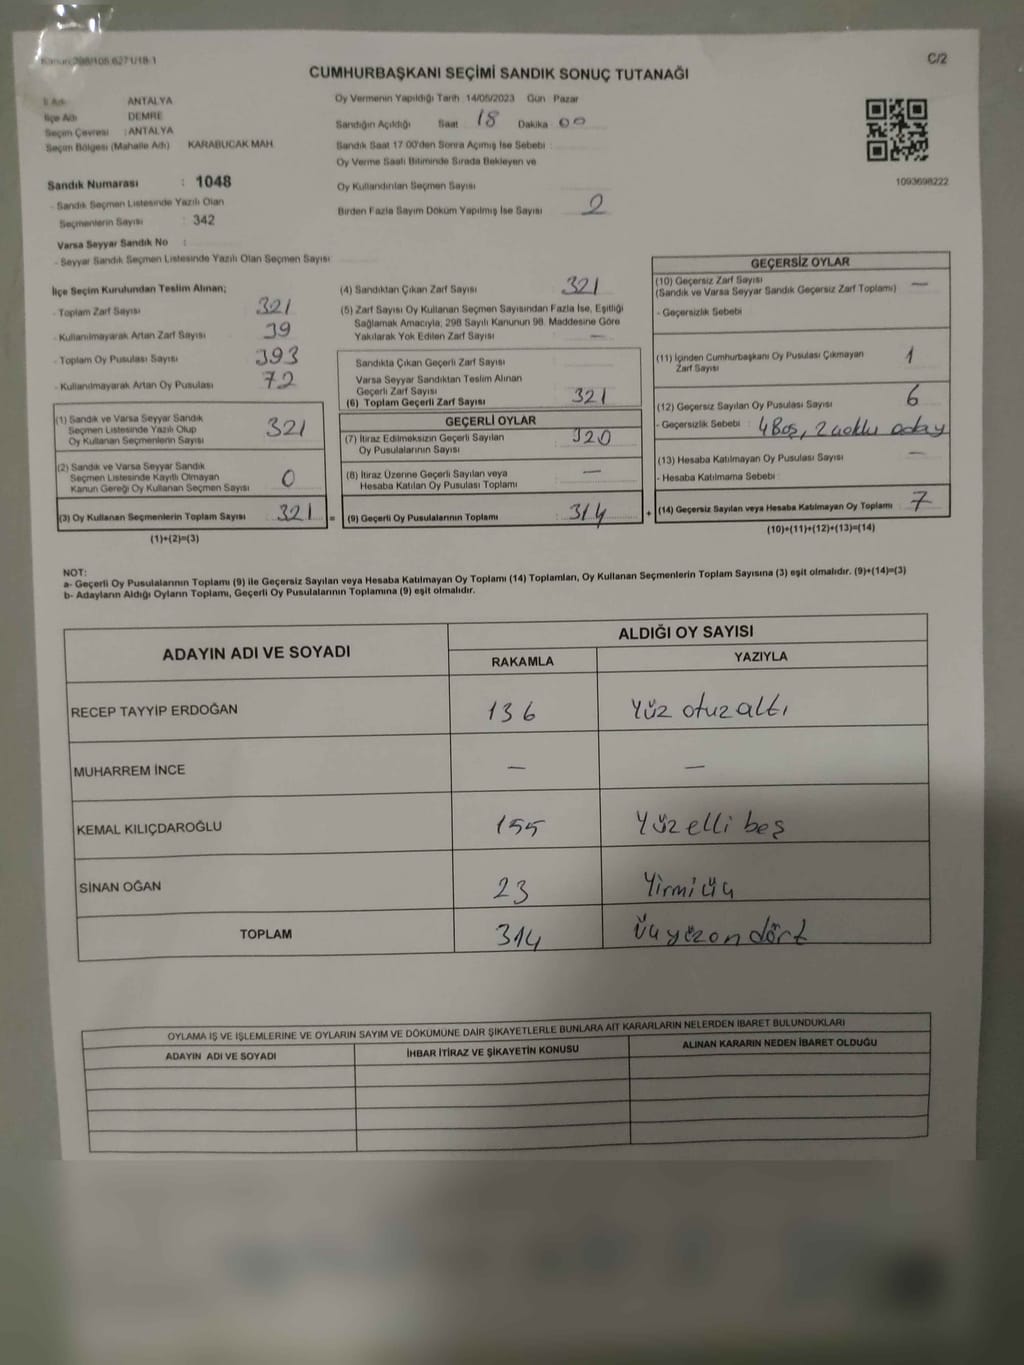 Kanun:298/105 627 U18-1
C/2
CUMHURBAŞKANI SEÇİMİ SANDIK SONUÇ TUTANAĞI
İl Adı ANTALYA
İlçe Adı DEMRE
Seçim Çevresi : ANTALYA
Seçim Bölgesi (Mahalle Adı) KARABUCAK MAH.
Sandık Numarası : 1048
- Sandık Seçmen Listesinde Yazılı Olan
Seçmenlerin Sayısı : 342
Varsa Seyyar Sandık No :
- Seyyar Sandık Seçmen Listesinde Yazılı Olan Seçmen Sayısı
Oy Vermenin Yapıldığı Tarih 14/05/2023 Gün Pazar
Sandığın Açıldığı Saat 18 Dakika 00
Sandık Saat 17:00'den Sonra Açımış İse Sebebi :
Oy Verme Saati Bitiminde Sırada Bekleyen ve
Oy Kullandırılan Seçmen Sayısı
Birden Fazla Sayım Döküm Yapılmış İse Sayısı 2
1093698222
İlçe Seçim Kurulundan Teslim Alınan;
- Toplam Zarf Sayısı 321
- Kullanılmayarak Artan Zarf Sayısı 39
- Toplam Oy Pusulası Sayısı 393
- Kullanılmayarak Artan Oy Pusulası 72
(1) Sandık ve Varsa Seyyar Sandık
Seçmen Listesinde Yazılı Olup
Oy Kullanan Seçmenlerin Sayısı 321
(2) Sandık ve Varsa Seyyar Sandık
Seçmen Listesinde Kayıtlı Olmayan
Kanun Gereği Oy Kullanan Seçmen Sayısı 0
(3) Oy Kullanan Seçmenlerin Toplam Sayısı 321 =
(1)+(2)=(3)
(4) Sandıktan Çıkan Zarf Sayısı 321
(5) Zarf Sayısı Oy Kullanan Seçmen Sayısından Fazla İse, Eşitliği
Sağlamak Amacıyla, 298 Sayılı Kanunun 98. Maddesine Göre
Yakılarak Yok Edilen Zarf Sayısı —
Sandıkta Çıkan Geçerli Zarf Sayısı
Varsa Seyyar Sandıktan Teslim Alınan
Geçerli Zarf Sayısı
(6) Toplam Geçerli Zarf Sayısı 321
GEÇERLİ OYLAR
(7) İtiraz Edilmeksizin Geçerli Sayılan
Oy Pusulalarının Sayısı 320
(8) İtiraz Üzerine Geçerli Sayılan veya
Hesaba Katılan Oy Pusulası Toplamı —
(9) Geçerli Oy Pusulalarının Toplamı : 314 +
GEÇERSİZ OYLAR
(10) Geçersiz Zarf Sayısı
(Sandık ve Varsa Seyyar Sandık Geçersiz Zarf Toplamı) —
- Geçersizlik Sebebi
(11) İçinden Cumhurbaşkanı Oy Pusulası Çıkmayan
Zarf Sayısı 1
(12) Geçersiz Sayılan Oy Pusulası Sayısı 6
- Geçersizlik Sebebi : 4 Boş, 2 çoklu aday
(13) Hesaba Katılmayan Oy Pusulası Sayısı —
- Hesaba Katılmama Sebebi :
(14) Geçersiz Sayılan veya Hesaba Katılmayan Oy Toplamı 7
(10)+(11)+(12)+(13)=(14)
NOT:
a- Geçerli Oy Pusulalarının Toplamı (9) ile Geçersiz Sayılan veya Hesaba Katılmayan Oy Toplamı (14) Toplamları, Oy Kullanan Seçmenlerin Toplam Sayısına (3) eşit olmalıdır. (9)+(14)=(3)
b- Adayların Aldığı Oyların Toplamı, Geçerli Oy Pusulalarının Toplamına (9) eşit olmalıdır.
ADAYIN ADI VE SOYADI
ALDIĞI OY SAYISI
RAKAMLA YAZIYLA
RECEP TAYYİP ERDOĞAN 136 Yüz otuz altı
MUHARREM İNCE — —
KEMAL KILIÇDAROĞLU 155 Yüz elli beş
SİNAN OĞAN 23 Yirmi üç
TOPLAM 314 Üç yüz on dört
OYLAMA İŞ VE İŞLEMLERİNE VE OYLARIN SAYIM VE DÖKÜMÜNE DAİR ŞİKAYETLERLE BUNLARA AİT KARARLARIN NELERDEN İBARET BULUNDUKLARI
ADAYIN ADI VE SOYADI İHBAR İTİRAZ VE ŞİKAYETİN KONUSU ALINAN KARARIN NEDEN İBARET OLDUĞU